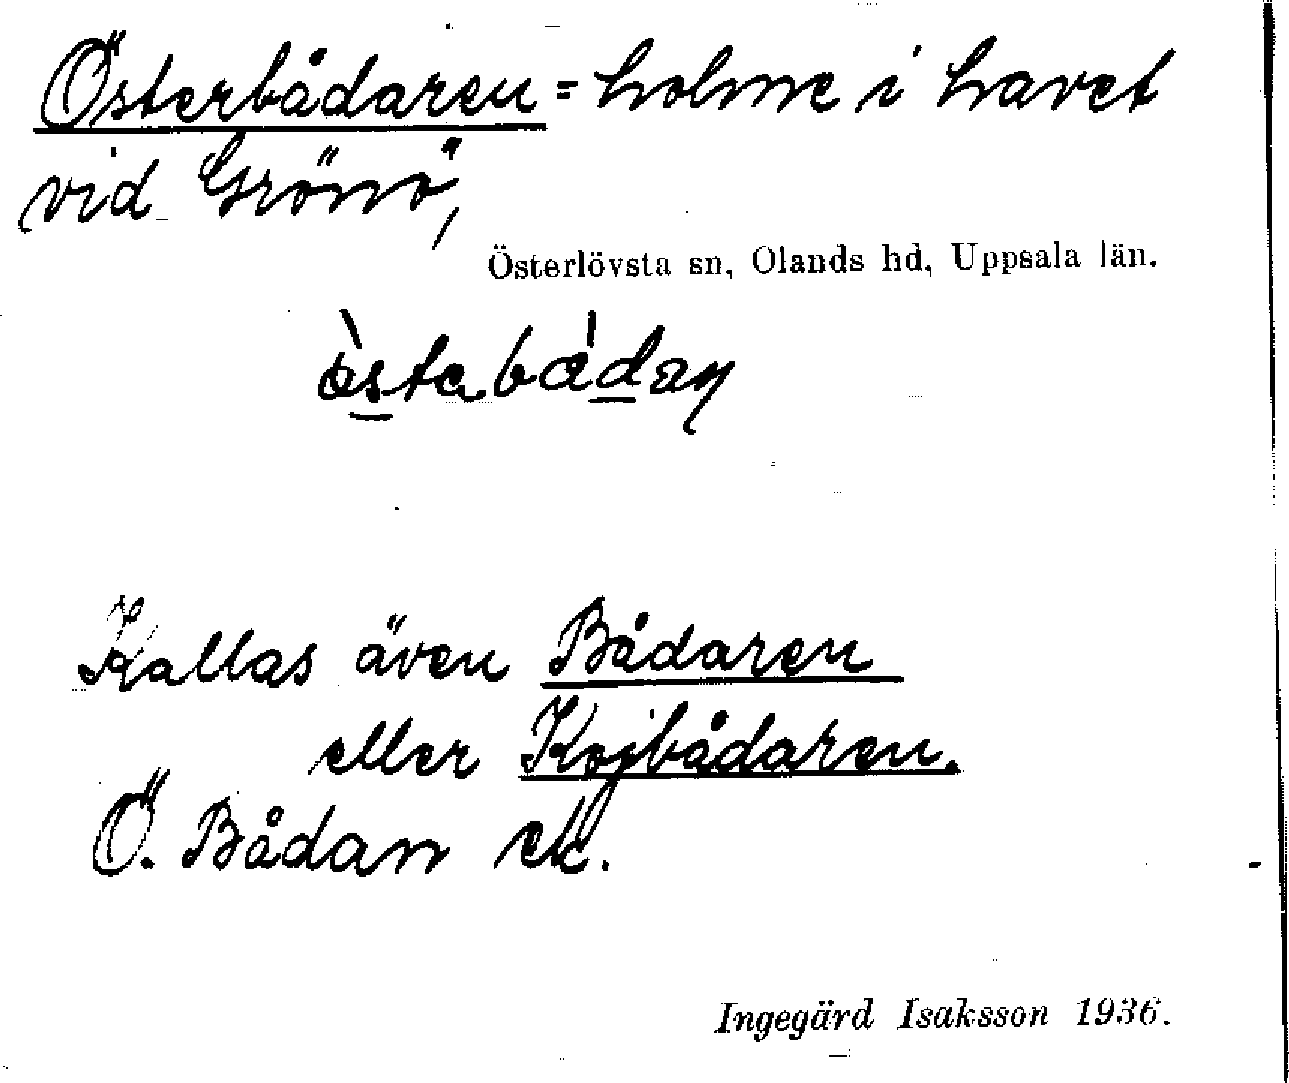 Österbådaren = holme i havet
vid Grönö,
Österlövsta sn, Olands hd, Uppsala län.
Kallas även Bådaren
eller Kojbådaren.
Ö. Bådan ek.
Ingegärd Isaksson 1936.